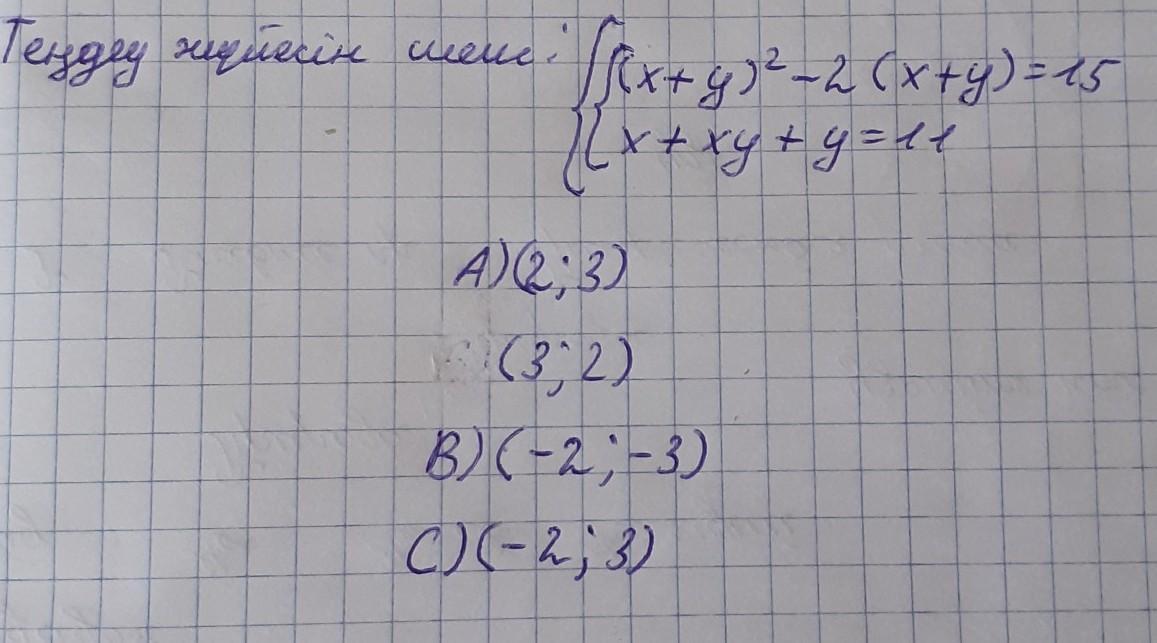 Теңдеу жүйесін шеш: {(x+y)²-2(x+y)=15
{x+xy+y=11
A)(2;3)
(3;2)
B)(-2;-3)
C)(-2;3)